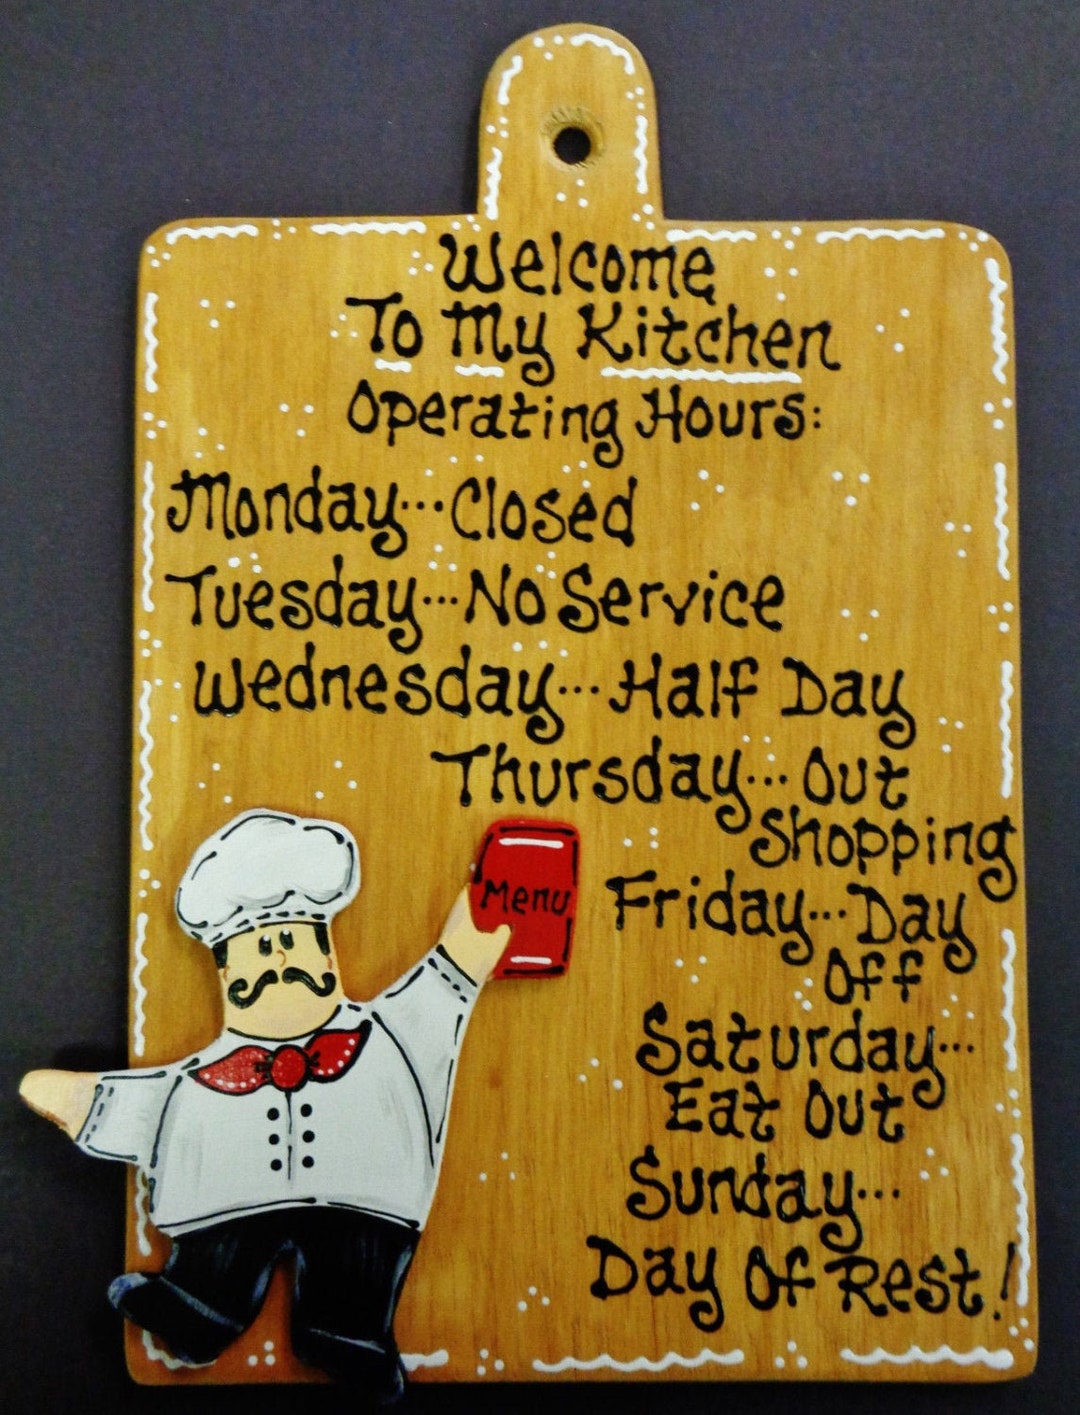 Welcome
To My Kitchen
Operating Hours:
Monday...Closed
Tuesday...No Service
Wednesday...Half Day
Thursday...Out
Shopping
Menu
Friday...Day
Off
Saturday...
Eat Out
Sunday...
Day Of Rest!